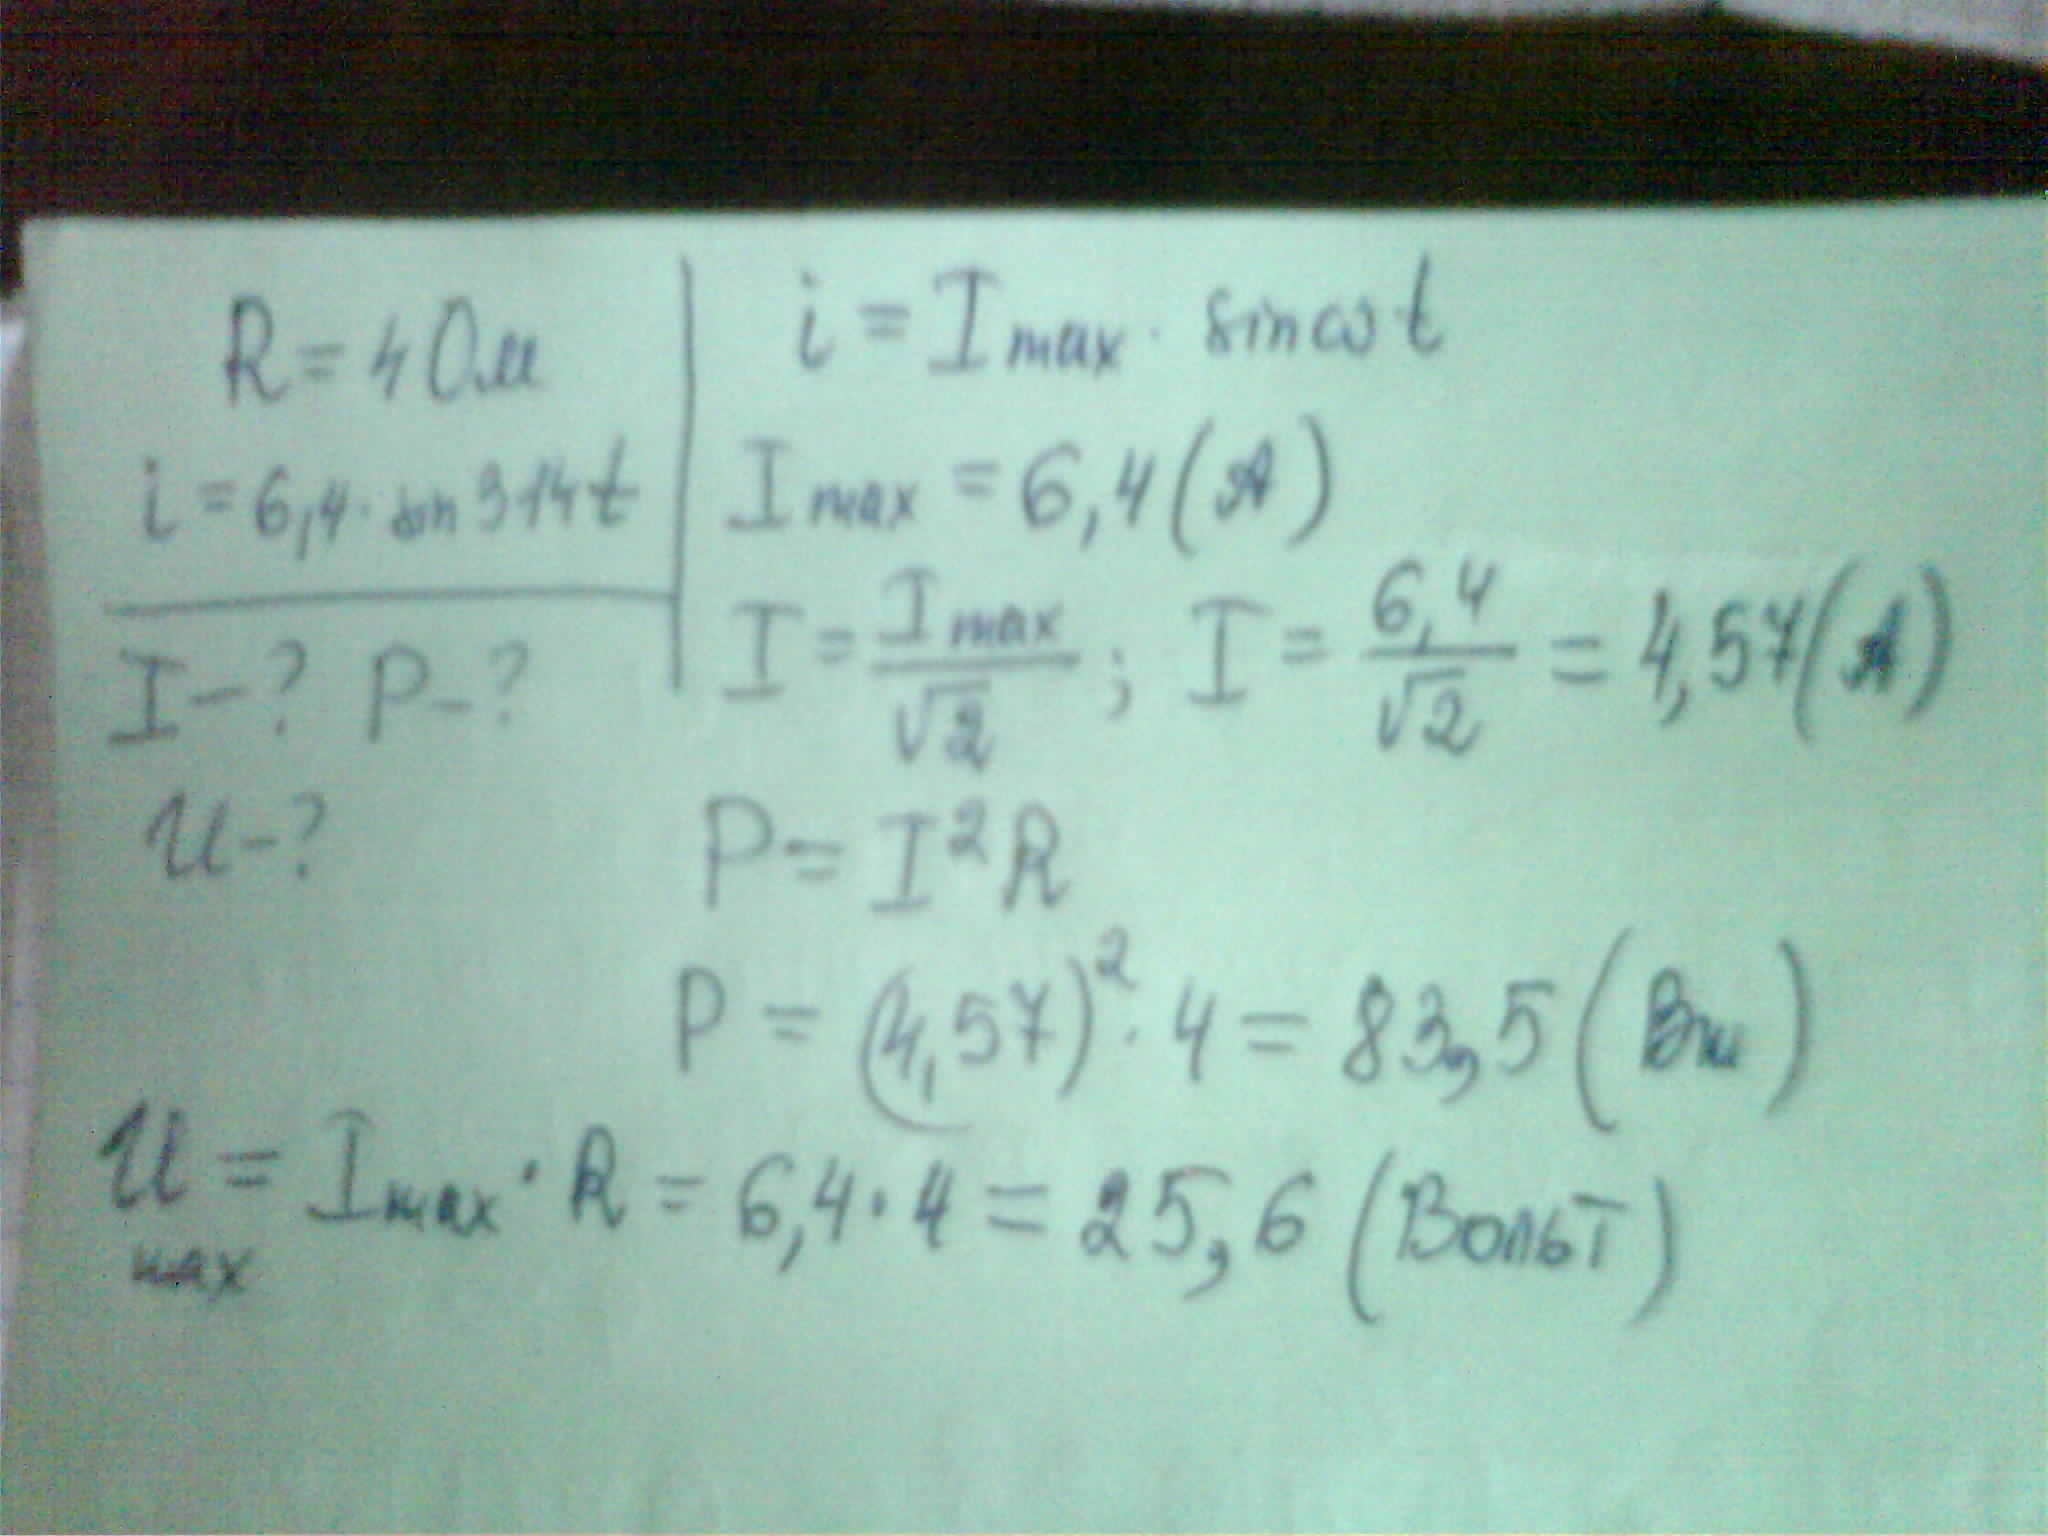 R = 4 Ом
i = 6,4 · sin 314t
I - ? P - ?
U - ?
i = Imax · sin ωt
Imax = 6,4 (А)
I = Imax/√2 ; I = 6,4/√2 = 4,57 (А)
P = I²R
P = (4,57)² · 4 = 83,5 (Вт)
Umax = Imax · R = 6,4 · 4 = 25,6 (Вольт)